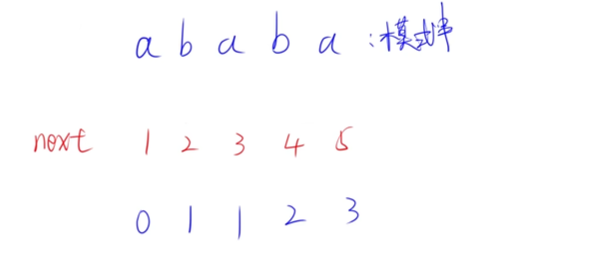 a b a b a :模式串
next 1 2 3 4 5
0 1 1 2 3